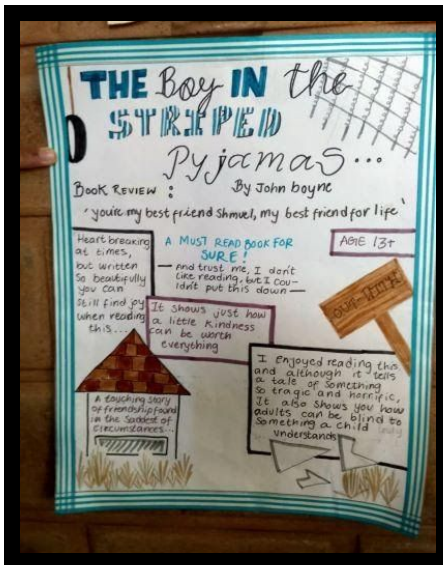 THE Boy IN the
STRIPED
Pyjamas...
BOOK REVIEW :
By John boyne
'you're my best friend Shmuel, my best friend for life'
Heart breaking
at times,
but written
so beautifully
you can
still find joy
when reading
this....
A MUST READ BOOK FOR
SURE!
— And trust me, I don't
like reading, but I cou-
ldn't put this down —
AGE 13+
It shows just how
a little kindness
can be worth
everything
OUT-WITH
A touching story
of friendship found
in the saddest of
circumstances...
I enjoyed reading this
and although it tells
a tale of something
so tragic and horrific,
It also shows you how
adults can be blind to
something a child
understands